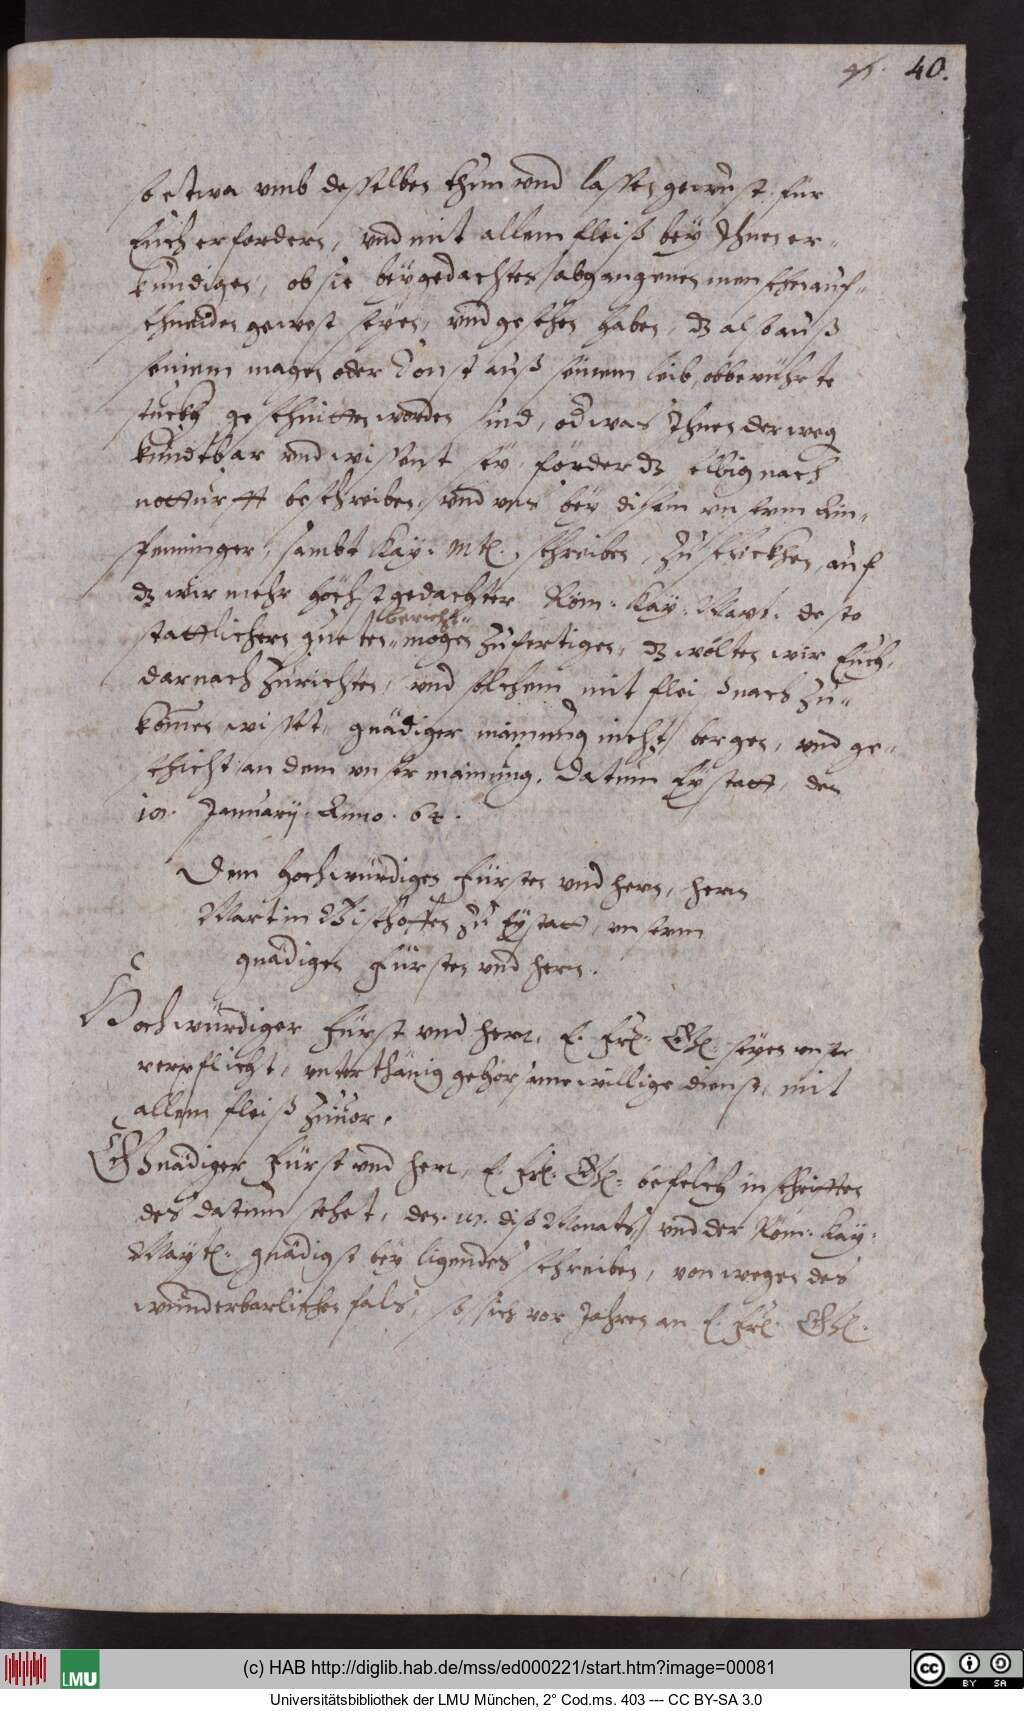 40.
so etwa vmb desselben thun vnd lassen gewust für
Euch erfordern, vnd mit allem fleiß bey Ihnen er-
kundigen, ob sie bey gedachtes abgangenen menschen auf-
schneiden gewest seyen, vnd gesehen haben, dz also auß
seinem magen oder sonst auß seinem leib, obberührte
stuckh geschnitten worden sind, od was Ihnen derweg
kundtbar vnd wissent sey, förder dz elbig nach
notturfft beschreiben, vnd vns bey disem vnserm Ein-
spenninger, sambt Kay. Mt. schreiben, zuschickhen, auf
dz wir mehr höchstgedachter Röm. Kay. Mayt. desto
stattlichern gueten bericht mögen zufertigen, dz wolten wir Euch,
darnach zurichten, vnd solchem mit fleiß nach zu-
komen wisset, gnädiger mainung nicht bergen, vnd ge-
schicht an dem vnser mainung. Datum Eystatt, den
Januarij Anno. 64.
Dem Hochwürdigen Fürsten vnd hern, hern
Martin Bischoffen zu Eystatt, vnserm
gnädigen Fürsten vnd hern.
Hochwürdiger Fürst vnd herr, E. Frl. Gl. seyen vnser
verpflicht, vnterthänig gehorsame willige dienst, mit
allem fleiß zuuor.
Gnädiger Fürst vnd herr, E. Frl. Gl. befelch in schrifften
des datum stehet, den diß Monats, vnd der Röm. Kay.
Mayt. gnädigst bey ligendes schreiben, von wegen des
wunderbarlichen fals, so sich vor Jahren an E. Frl. Gl.
(c) HAB http://diglib.hab.de/mss/ed000221/start.htm?image=00081
LMU
cc BY SA
Universitätsbibliothek der LMU München, 2° Cod.ms. 403 --- CC BY-SA 3.0